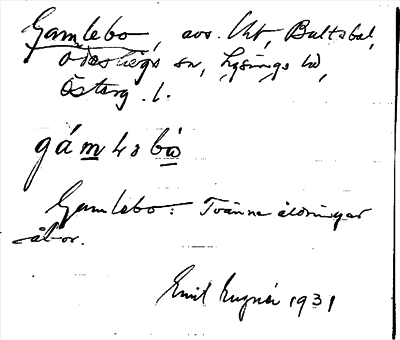 Gamlebo, avs. Uht, Baltabol,
Ödeshögs sn, Lysings hd,
Österg. l.
gámlobo
Gamlebo: Tvänne åldringar
åbor.
Emil 1931